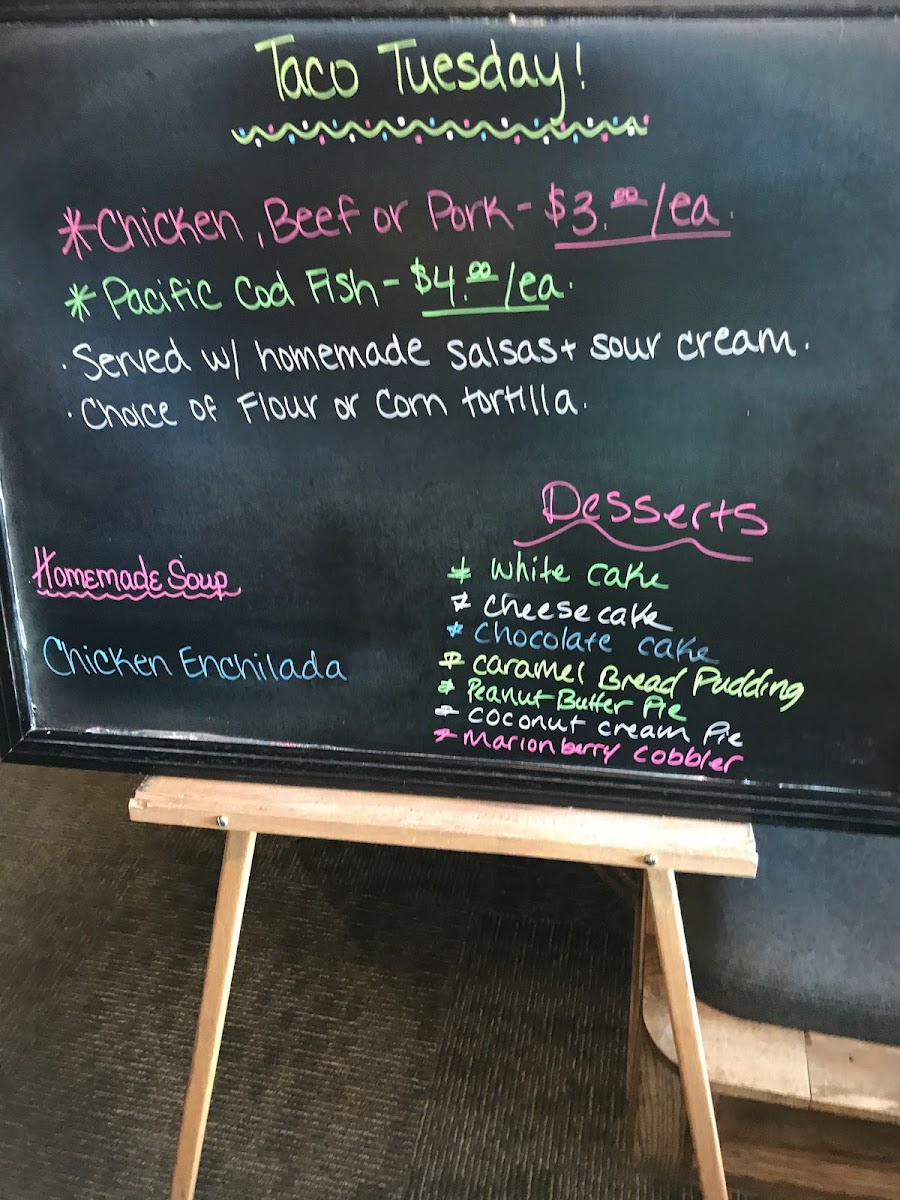 Taco Tuesday!
*Chicken, Beef or Pork - $3.00/ea.
*Pacific Cod Fish - $4.00/ea.
· Served w/ homemade salsas + sour cream.
· Choice of Flour or Corn tortilla.
Homemade Soup
Chicken Enchilada
Desserts
* White cake
* cheese cake
* Chocolate cake
* caramel Bread Pudding
* Peanut Butter Pie
* coconut cream Pie
* Marionberry cobbler